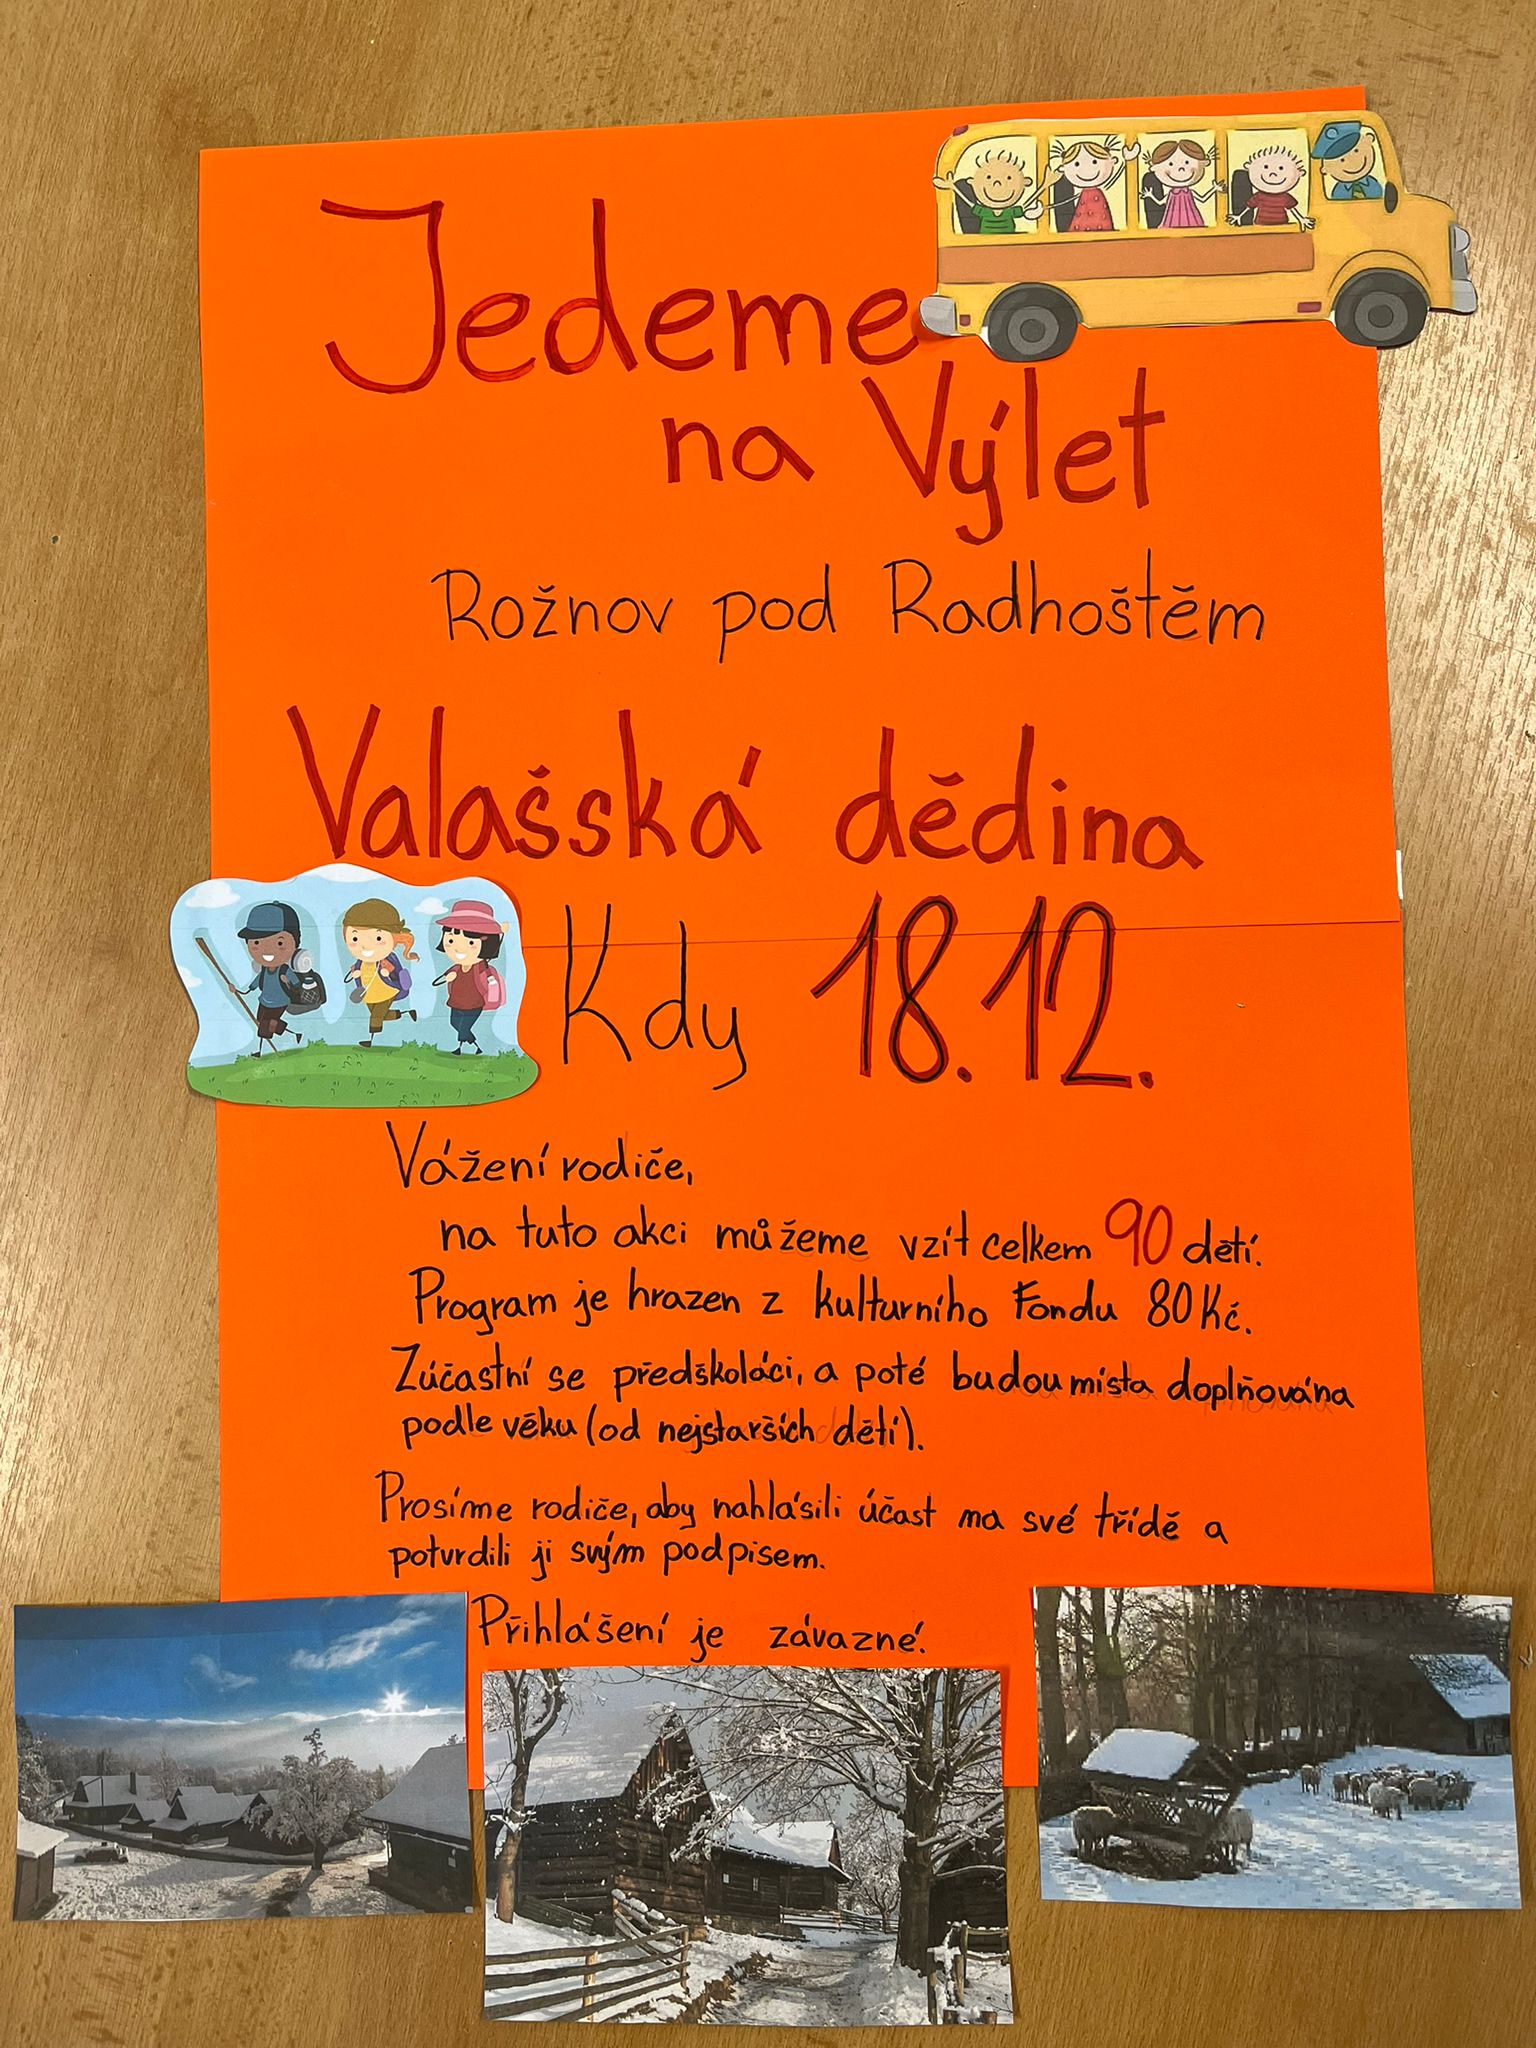 Jedeme
na Výlet
Rožnov pod Radhoštěm
Valašská dědina
Kdy 18.12.
Vážení rodiče,
na tuto akci můžeme vzít celkem 90 dětí.
Program je hrazen z kulturního Fondu 80Kč.
Zúčastní se předškoláci, a poté budou místa doplňována
podle věku (od nejstarších dětí).
Prosíme rodiče, aby nahlásili účast na své třídě a
potvrdili ji svým podpisem.
Přihlášení je závazné!